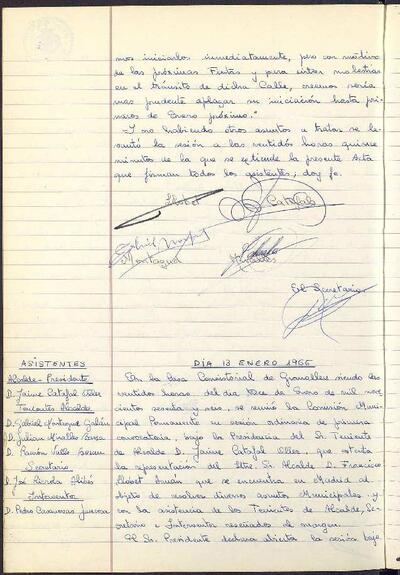 mos iniciarlos inmediatamente, pero con motivo
de las próximas Fiestas y para evitar molestias
en el tránsito de dicha Calle, creemos sería
mas prudente aplazar su iniciación hasta pri-
meros de Enero próximo."
=Y no habiendo otros asuntos a tratar se le-
vantó la sesión a las veintidós horas quince
minutos de la que se extiende la presente Acta
que firman todos los asistentes; doy fe.
Llobet
Catafal
Montagud
Miralles
El Secretario
ASISTENTES
Alcalde-Presidente
D. Jaime Catafal
Tenientes Alcalde
D. Gabriel Montagud
D. Julian Miralles
D. Ramón Valls
Secretario
D. José
Interventor
D. Pedro Casanovas
DIA 13 ENERO 1966
En la Casa Consistorial de Granollers siendo las
veintidos horas, del dia trece de Enero de mil nove-
cientos sesenta y seis, se reunió la Comision Muni-
cipal Permanente en sesión ordinaria de primera
convocatoria, bajo la Presidencia del Sr. Teniente
de Alcalde D. Jaime Catafal, que ostenta
la representación del Iltre. Sr. Alcalde D. Francisco
Llobet que se encuentra en Madrid al
objeto de resolver diversos asuntos Municipales, y
con la asistencia de los Tenientes de Alcalde, Se-
cretario e Interventor reseñados al margen.
El Sr. Presidente declara abierta la sesión bajo